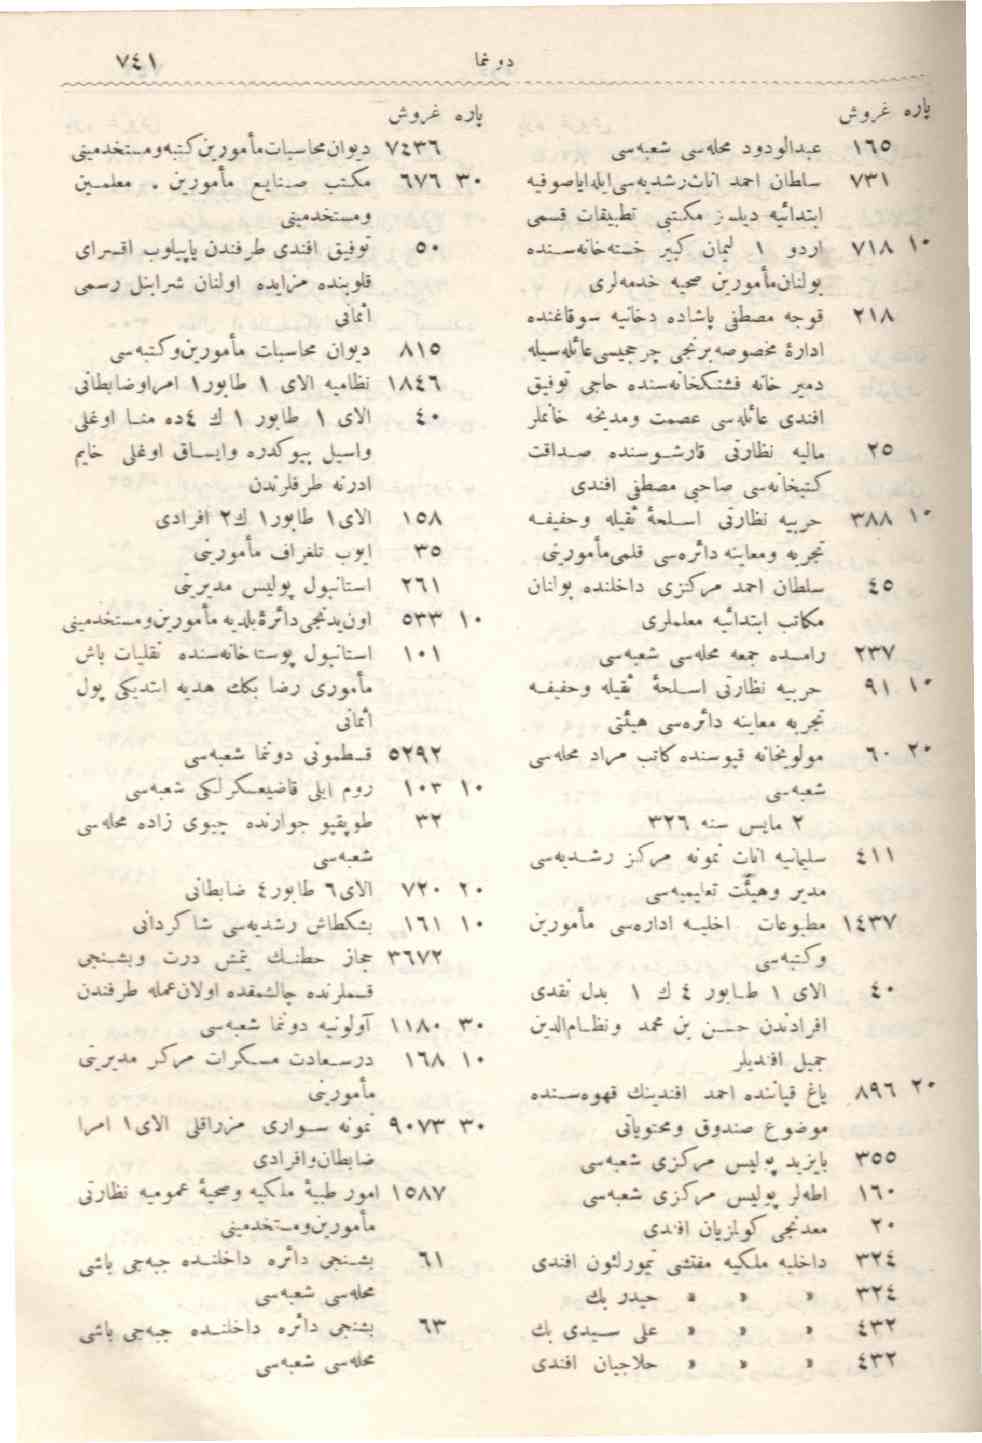 دونما
٧٤١
پاره غروش
١٦٥ عبدالودود محله‌سی شعبه‌سی
٧٣١ سلطان احمد اناث رشدیه‌سی ایله ایاصوفیه
ابتدائیه دیلسز مکتبی تطبیقات قسمی
١٠ ٧١٨ اردو ١ لیمان کبیر خسته‌خانه‌سنده
بولنان مأمورین صحیه خدمه‌لری
٢١٨ قوجه مصطفی پاشاده دخانیه سوقاغنده
ادارهٔ مخصوصه برنجی چرچیسی عائله‌سیله
دمیر خانه فشنکخانه‌سنده حاجی توفیق
افندی عائله‌سی عصمت ومدیحه خانملر
٢٥ مالیه نظارتی قارشوسنده صداقت
کتبخانه‌سی صاحبی مصطفی افندی
١٠ ٣٨٨ حربیه نظارتی اسلحهٔ ثقیله وخفیفه
تجربه ومعاینه دائره‌سی قلمی مأمورینی
٤٥ سلطان احمد مرکزی داخلنده بولنان
مکاتب ابتدائیه معلملری
٢٣٧ رامیده جمعه محله‌سی شعبه‌سی
١٠ ٩١ حربیه نظارتی اسلحهٔ ثقیله وخفیفه
تجربه معاینه دائره‌سی هیئتی
٢٠ ٦٠ مولویخانه قپوسنده کاتب مراد محله‌سی
شعبه‌سی
٢ مایس سنه ٣٢٦
٤١١ سلیمانیه اناث نمونه مرکز رشدیه‌سی
مدیر وهیئت تعلیمیه‌سی
١٤٣٧ مطبوعات داخلیه اداره‌سی مأمورین
وکتبه‌سی
٤٠ الای ١ طابور ٤ ك ١ بدل نقدی
افرادندن حسن بن محمد ونظام‌الدین
جمیل افندیلر
٢٠ ٨٩٦ یاغ قپاننده احمد افندینك قهوه‌سنده
موضوع صندوق ومحتویاتی
٣٥٥ بایزید پولیس مرکزی شعبه‌سی
١٦٠ اطه‌لر پولیس مرکزی شعبه‌سی
٢٠ معدنجی کولزیان افندی
٣٢٤ داخلیه ملکیه مفتشی تیمورلئون افندی
٣٢٤ » » » حیدر بك
٤٣٢ » » » علی سیدی بك
٤٣٢ » » » حلاجیان افندی
پاره غروش
٧٤٣٦ دیوان محاسبات مأمورین کتبه ومستخدمینی
٣٠ ٦٧٦ مکتب صنایع مأمورین . معلمین
ومستخدمینی
٥٠ توفیق افندی طرفندن یاپیلوب اقسرای
قلوبنده مزایده اولنان شراینل رسمی
اثمانی
٨١٥ دیوان محاسبات مأمورین وکتبه‌سی
١٨٤٦ نظامیه الای ١ طابور ١ امرا وضابطانی
٤٠ الای ١ طابور ١ ك ٤ ده منا اوغلی
واسیل بیوکدره وایساق اوغلی خایم
ادرنه طرفلرندن
١٥٨ الای ١ طابور ١ ك ٢ افرادی
٣٥ ایوب تلغراف مأمورینی
٢٦١ استانبول پولیس مدیریتی
١٠ ٥٣٣ اون یدنجی دائرهٔ بلدیه مأمورین ومستخدمینی
١٠١ استانبول پوسته‌خانه‌سنده نقلیات باش
مأموری رضا بكك هدیه ایتدیکی پول
اثمانی
٥٢٩٢ قسطمونی دونما شعبه‌سی
١٠ ١٠٣ روم ایلی قاضیعسکرلکی شعبه‌سی
٣٢ طوپقپو جوارنده جبوی زاده محله‌سی
شعبه‌سی
٢٠ ٧٢٠ الای ٦ طابور ٤ ضابطانی
١٠ ١٦١ بشکطاش رشدیه‌سی شاکردانی
٣٦٧٢ حجاز خطنك یتمش درت وبشنجی
قسملرنده چالشمقده اولان عمله طرفندن
٣٠ ١١٨٠ آولونیه دونما شعبه‌سی
١٠ ١٦٨ درسعادت مسکرات مرکز مدیریتی
مأمورینی
٣٠ ٩٠٧٣ نمونه سواری مزراقلی الای ١ امرا
ضابطان وافرادی
١٥٨٧ امور طبیهٔ ملکیه وصحیهٔ عمومیه نظارتی
مأمورین ومستخدمینی
٦١ بشنجی دائره داخلنده جبه‌جی باشی
محله‌سی شعبه‌سی
٦٣ بشنجی دائره داخلنده جبه‌جی باشی
محله‌سی شعبه‌سی